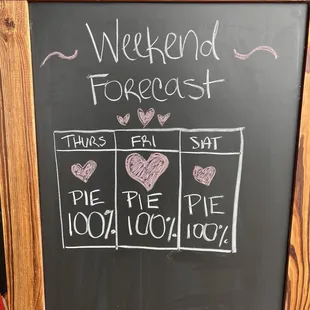 Weekend
Forecast
THURS FRI SAT
PIE PIE PIE
100% 100% 100%